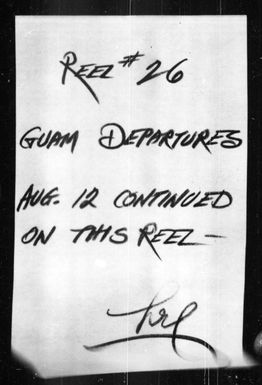 REEL # 26
GUAM DEPARTURES
AUG. 12 CONTINUED
ON THIS REEL —